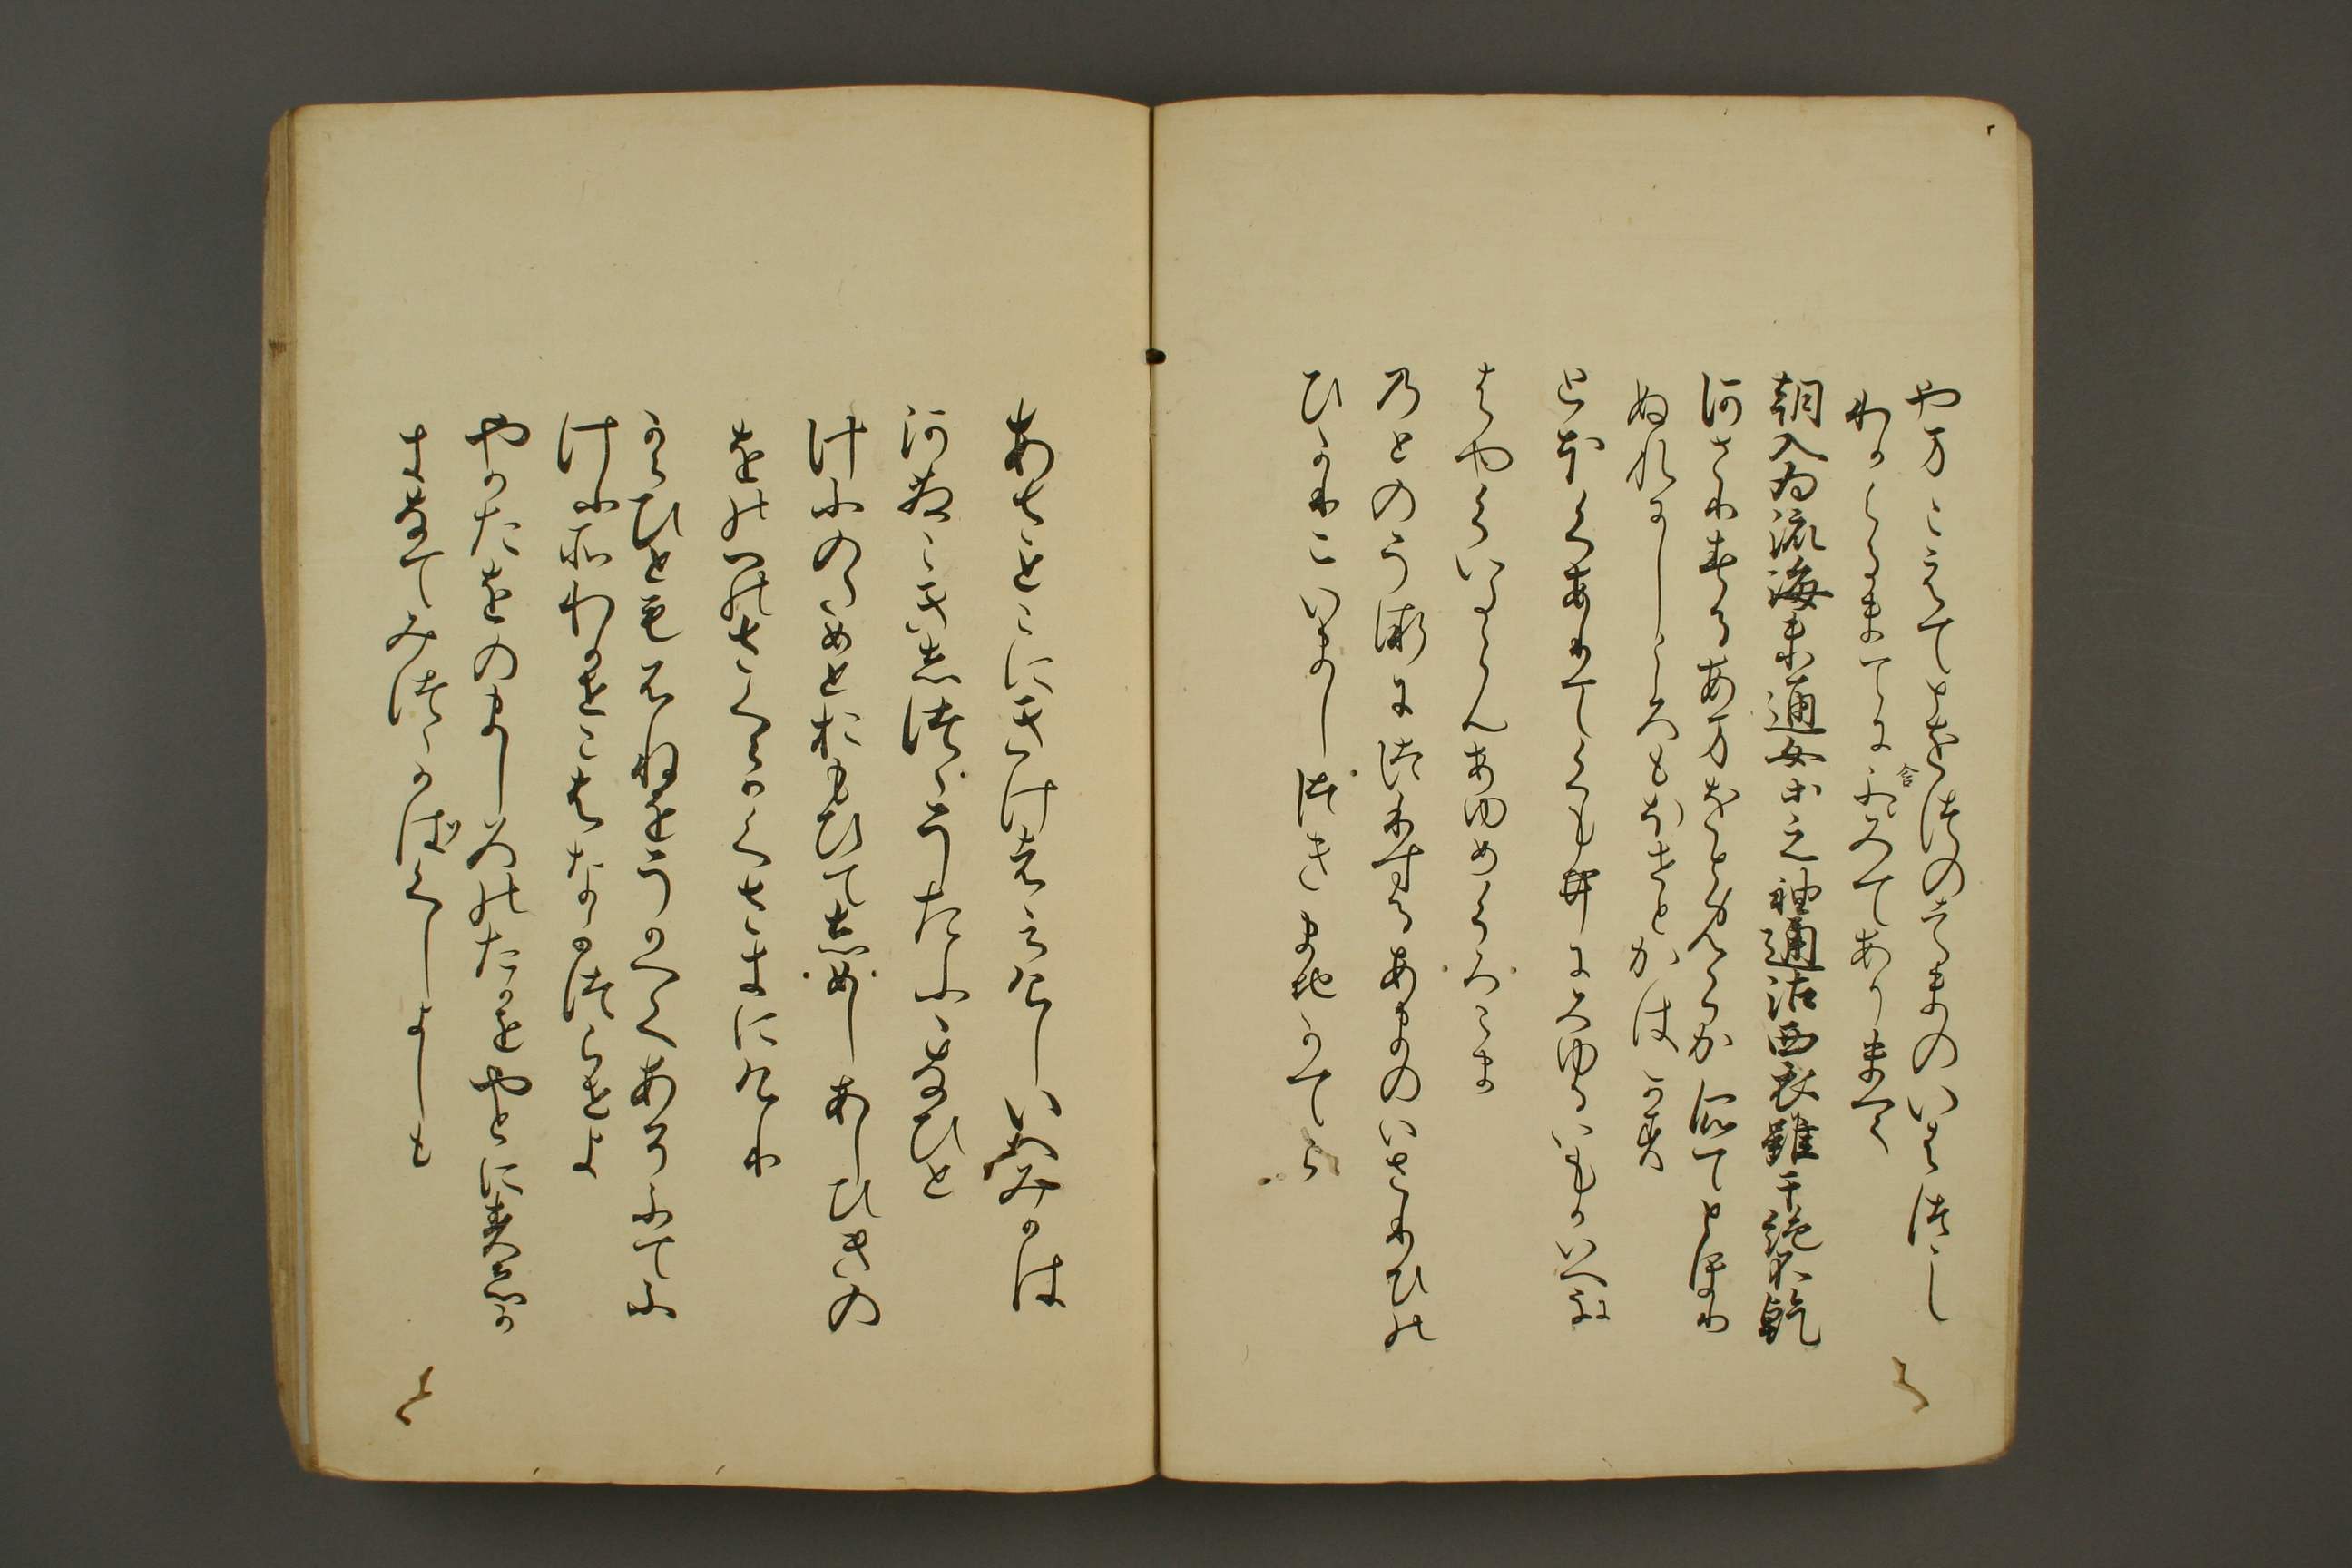 や万こえてとをつのはまのいはつゝし
わかくるまてにふゝみてありまて
含
朝入為流海未通女等之袖通沾西衣雖干跡不乾
あさりするあまをとめらか袖てとほり
ぬれにしころもほせとかはかす
とほくありてくもゐにみゆるいもかいへに
はやくいたらんあゆめくろこま
のとのうみにつりするあまのいさりひの
ひかりにいましつきまちかてら
あさとこにきけははるけしいつみかは
あさこきしつゝうたふふなひと
けふのためとおもひてしめしあしひきの
をのへのさくらかくさきにけり
からひともふねをうかへてあそふてふ
けふそわかせこはなかつらせよ
やかたをのましろのたかをやとにすゑか
きなてみつゝかばくしよしも